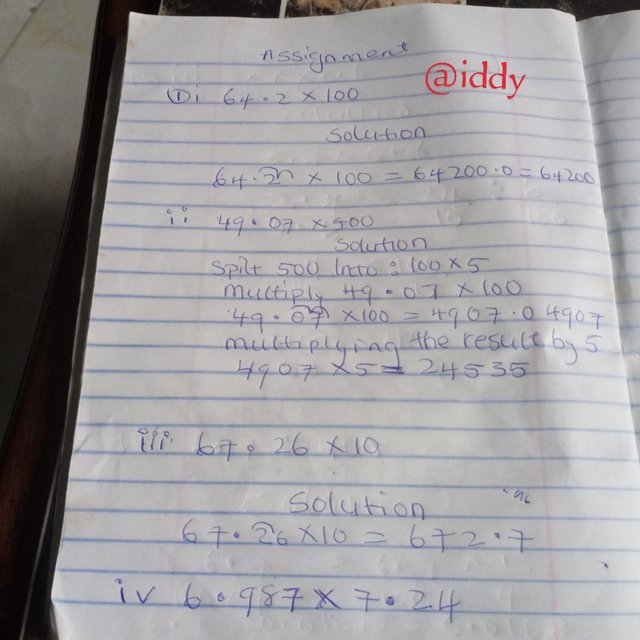 Assignment
@iddy
①i 64.2 × 100
Solution
64.2 × 100 = 64200.0 = 64200
ii 49.07 × 500
Solution
Spilt 500 Into : 100 × 5
multiply 49.07 × 100
49.07 × 100 = 4907.0 4907
multiplying the result by 5
4907 × 5 = 24535
iii. 67.26 × 10
Solution
67.26 × 10 = 672.7
iv 6.987 × 7.24